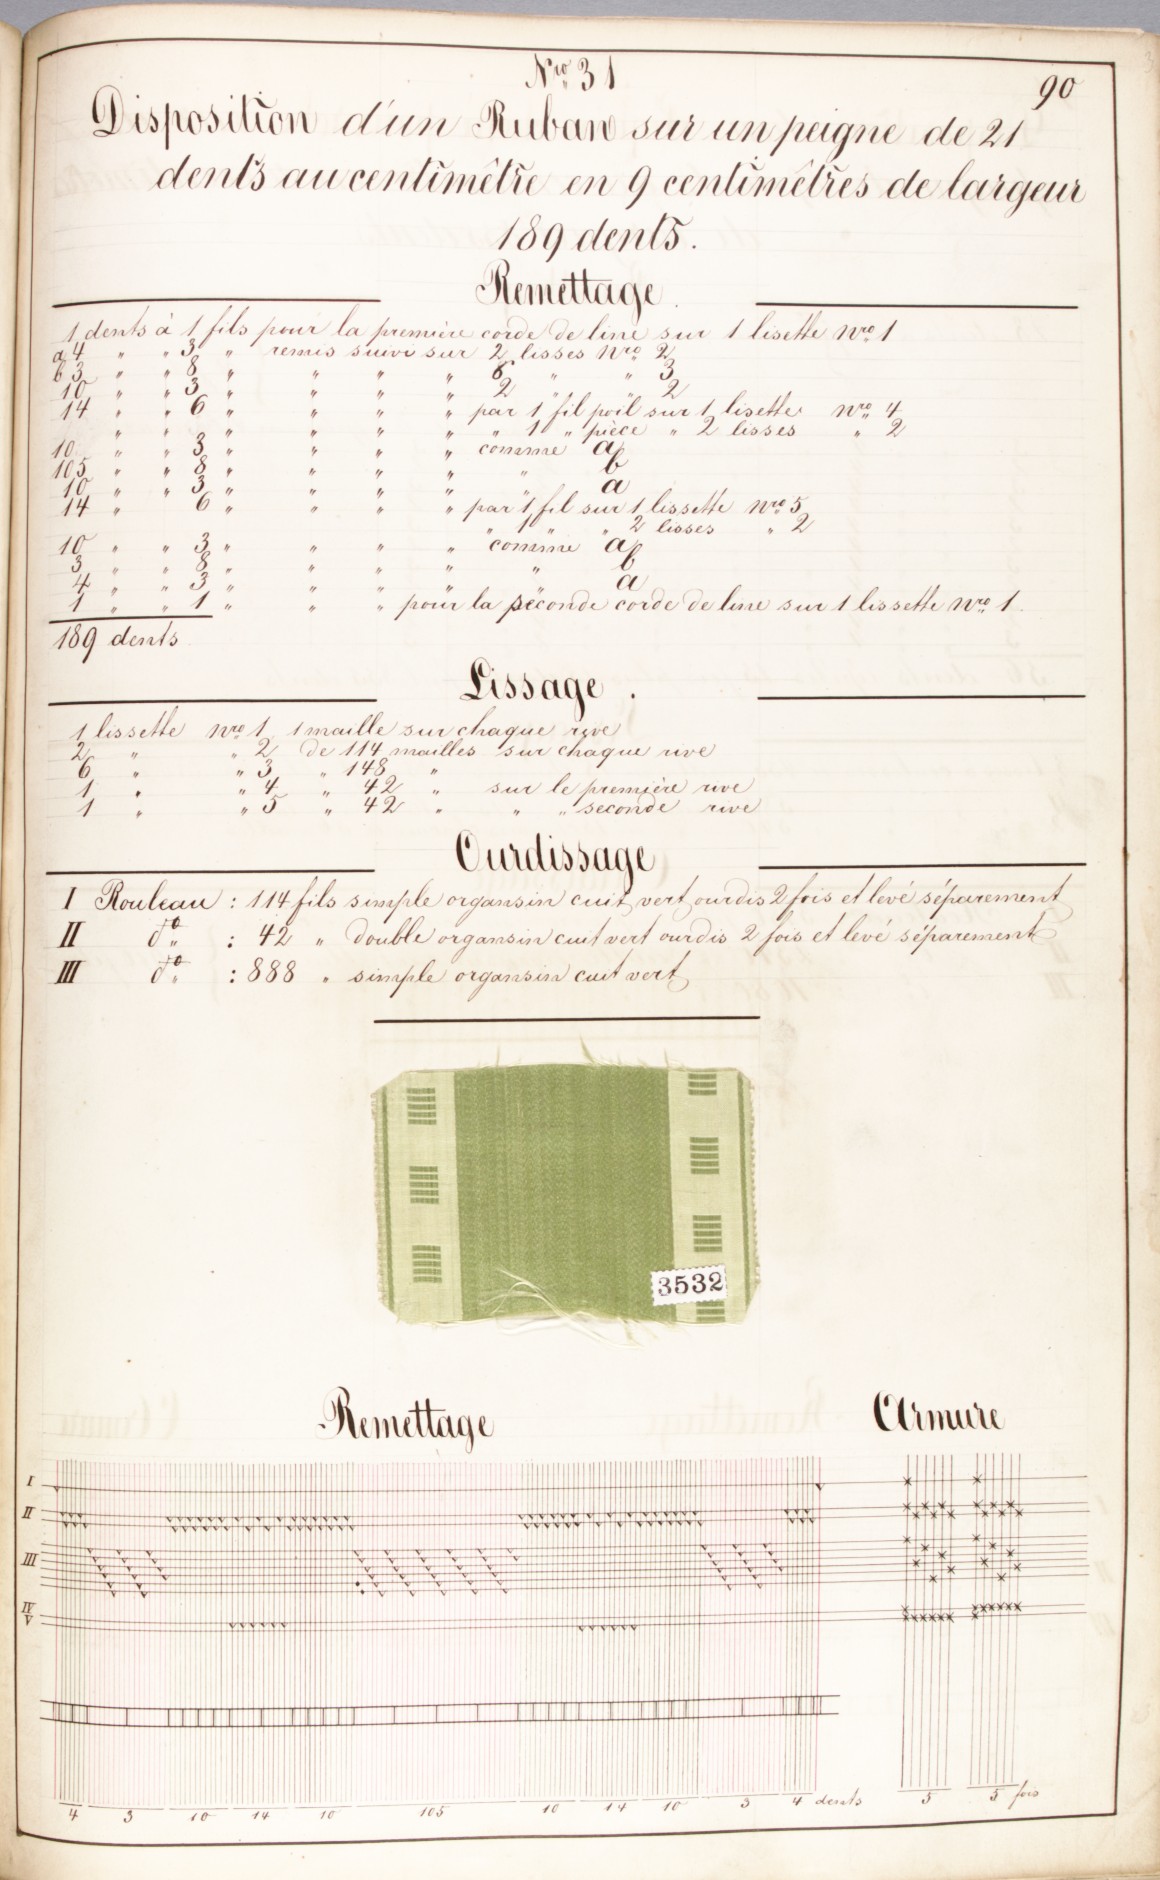 Nro 31
90
Disposition d'un Ruban sur un peigne de 21
dents au centimêtre en 9 centimêtres de largeur
189 dents.
Remettage.
1 dents à 1 fils pour la première corde de line sur 1 lisette Nro 1
a 4 " " 3 " remis suivi sur 2 lisses Nro 2
b 3 " " 8 " " " " 6 " " 3
10 " " 3 " " " " 2 " " 2
14 " " 6 " " " " par 1 fil poil sur 1 lisette Nro 4
" " " " " " " 1 " pièce " 2 lisses " 2
10 " " 3 " " " " comme a
105 " " 8 " " " " " b
10 " " 3 " " " " " a
14 " " 6 " " " " par 1 fil sur 1 lissette Nro 5
" 1 " " 2 lisses " 2
10 " " 3 " " " " comme a
3 " " 8 " " " " " b
4 " " 3 " " " " " a
1 " " 1 " " " pour la seconde corde de line sur 1 lissette Nro 1.
189 dents
Lissage.
1 lissette Nro 1 1 maille sur chaque rive
2 " " 2 de 114 mailles sur chaque rive
6 " " 3 " 148 "
1 " " 4 " 42 " sur le première rive
1 " " 5 " 42 " " " seconde rive
Ourdissage
I Rouleau : 114 fils simple organsin cuit vert ourdis 2 fois et levé séparement
II do : 42 " double organsin cuit vert ourdis 2 fois et levé séparement
III do : 888 " simple organsin cuit vert
3532
Remettage
Armure
I
II
III
IV
V
4 3 10 14 10 105 10 14 10 3 4 dents
5 5 fois